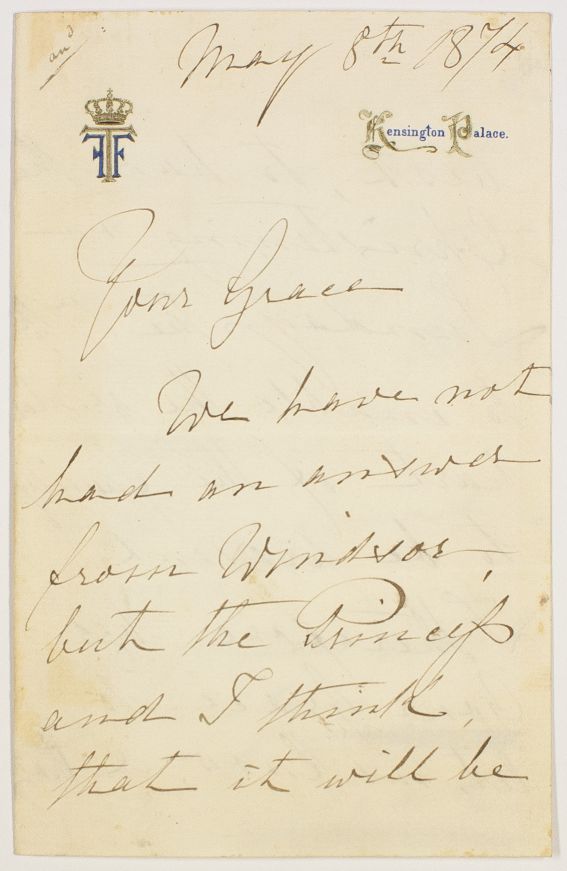 and
May 8th 1874
Kensington Palace.
Your Grace
We have not
had an answer
from Windsor,
but the Princess
and I think,
that it will be